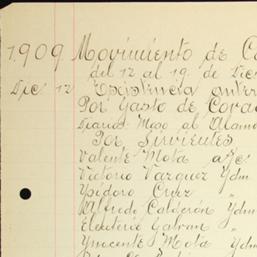 1.909 Movimiento de Ca
del 12 al 19 de Dic
Dic 12 Existencia anter
Por gasto de Cora
Diarios Mozo al Alamo
Por Sirvientes
Valente Mota a/c
Victorio Vazquez Ydm
Ysidoro Cruz "
Alfredo Calderón Ydm
Eleuterio Galvan "
Ynocente Mota Ydm